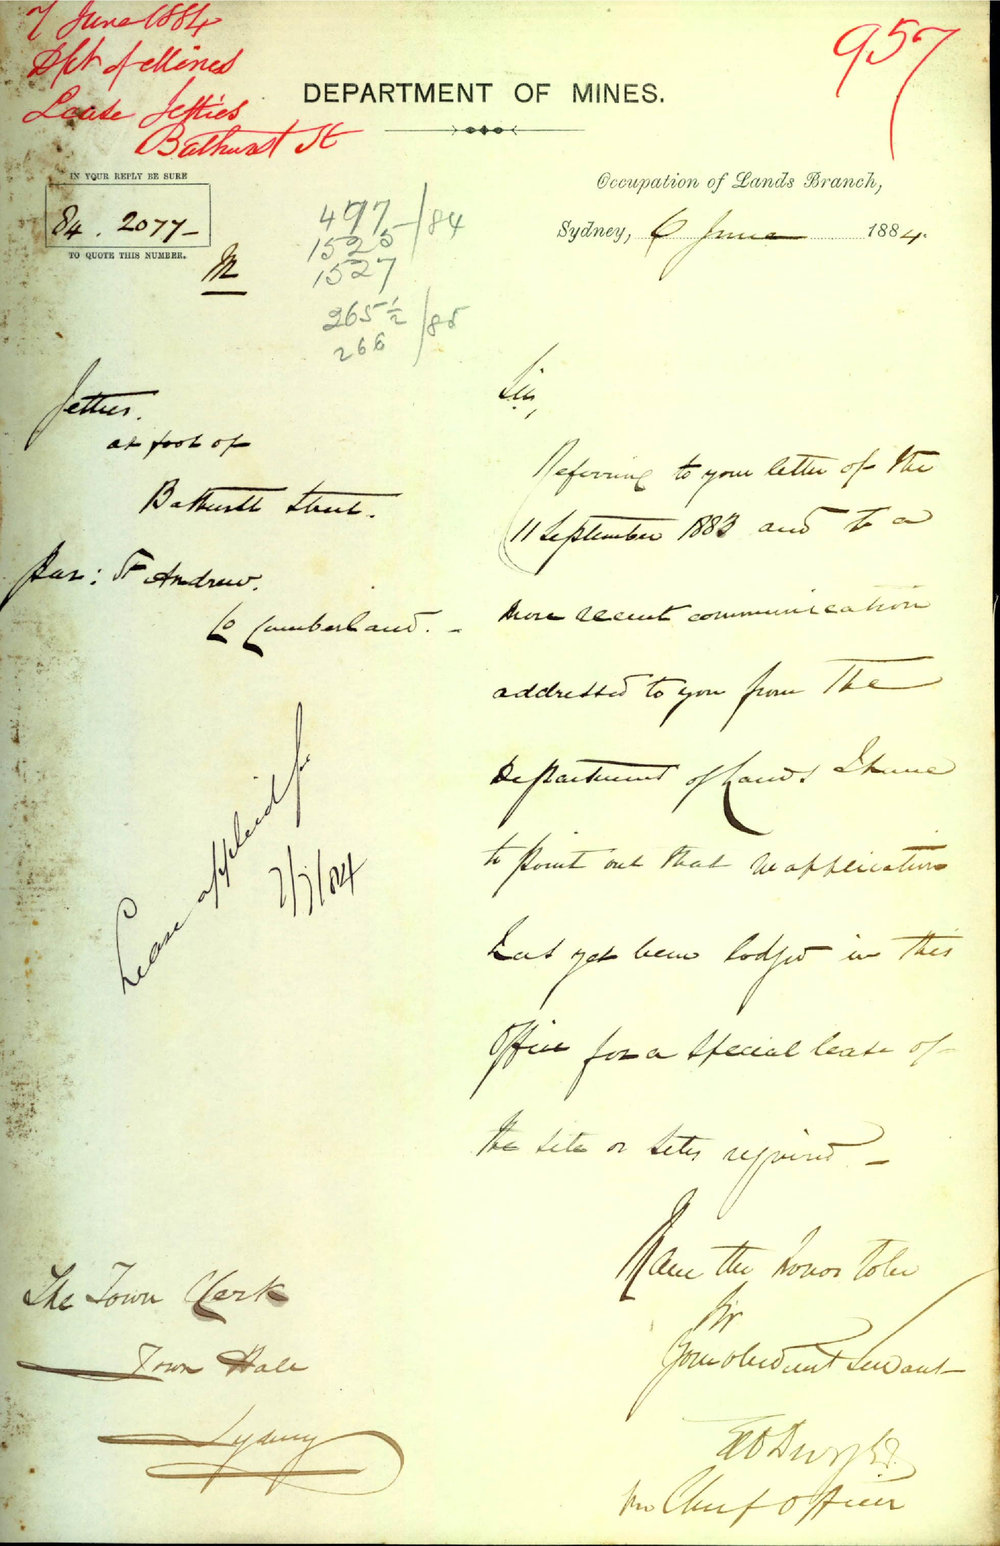 7 June 1884
Dpt of Mines
Lease Jetties
Bathurst St
957
DEPARTMENT OF MINES.
IN YOUR REPLY BE SURE
84. 2077-
TO QUOTE THIS NUMBER.
M
497
1525 /84
1527
265 1/2 /85
266
Occupation of Lands Branch,
Sydney, 6 June 1884.
Jetties.
at foot of
Bathurst Street.
Par: St Andrew.
Co Cumberland. -
Sir,
Referring to your letter of the
11 September 1883 and to a
more recent communication
addressed to you from the
Department of Lands I have
to point out that no application
has yet been lodged in this
Office for a special lease of
the site or sites required -
Lease applied for
7/7/84
Have the honor to be
Sir
Your obedient Servant
for Chief Officer
The Town Clerk
Town Hall
Sydney